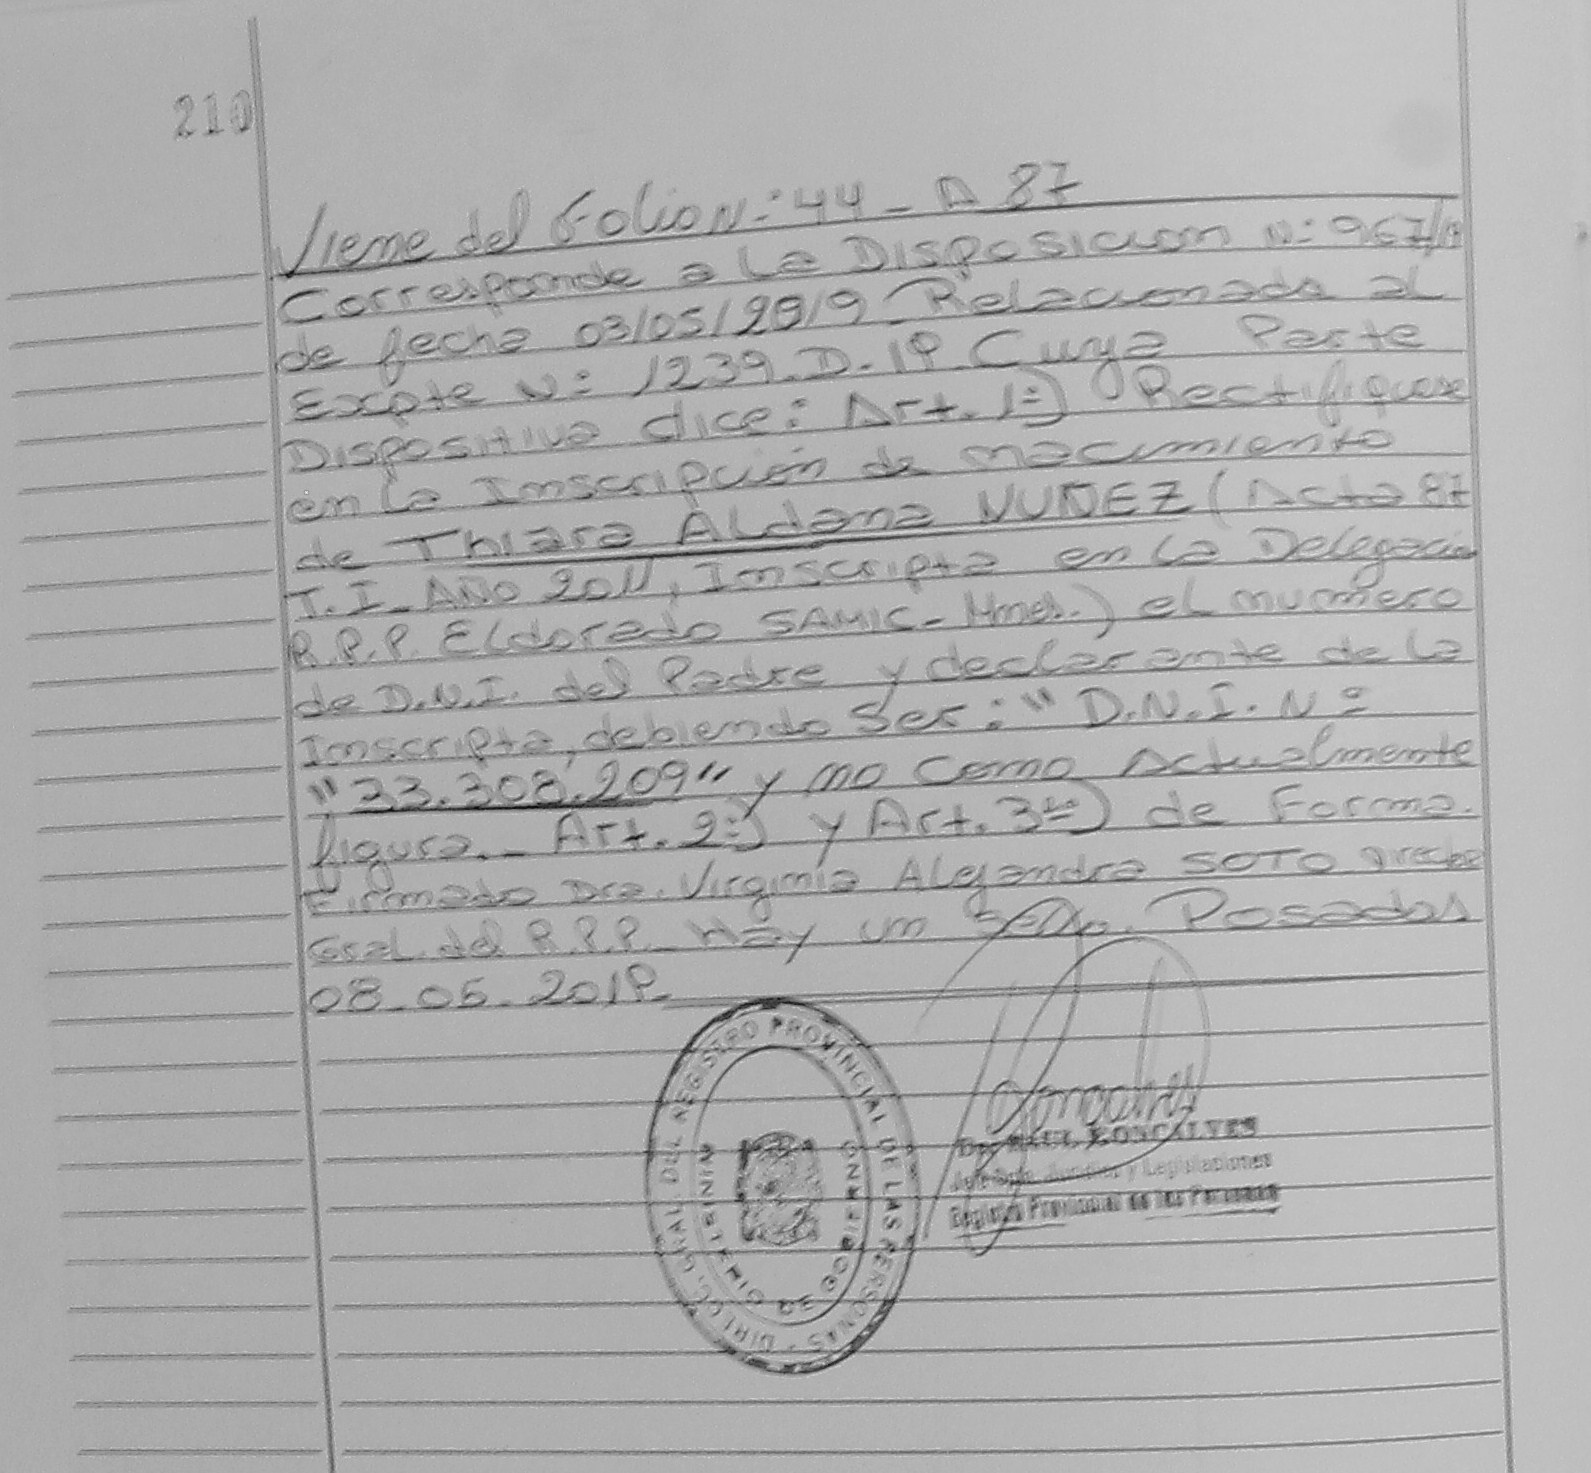 210
Viene del Folio N: 44 - A 87
Corresponde a La Disposicion N: 967/19
de fecha 03/05/2019 Relacionada al
Expte N: 1239-D-19 Cuya Parte
Dispositiva dice: Art. 1:) Rectifiquese
en La Inscripción de nacimiento
de Thiara Aldana NUÑEZ (Acta 87
T. I - AÑO 2011, Inscripta en La Delegación
R.P.P. Eldorado SAMIC - Mnes.) el numero
de D.N.I. del Padre y declarante de La
Inscripta, debiendo Ser: " D.N.I. Nº
"33.308.209" y no como Actualmente
figura. - Art. 2:) y Art. 3º) de Forma.
Firmado Dra. Virginia Alejandra SOTO Directora
Gral. del R.P.P. - Hay un Sello. Posadas
08-05-2019-
DIRECC. GRAL. DEL REGISTRO PROVINCIAL DE LAS PERSONAS
MINISTERIO DE GOBIERNO
Goncalves
GONCALVES
Jurídica y Legislaciones
Registro Provincial de las Personas